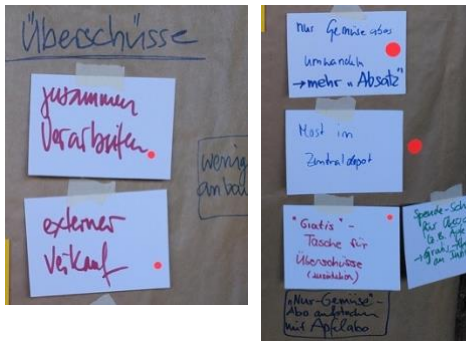 Überschüsse
zusammen
Verarbeiten
wenig
anbau
externer
Verkauf
nur Gemüseabos
umwandeln
→ mehr "Absatz"
Most im
Zentraldepot
"Gratis"-
Tasche für
Überschüsse
Spende-Sch
für
(z.B. Apfe
→ Gratis-
"Nur-Gemüse"-
Abo aufstocken
mit Apfelabo